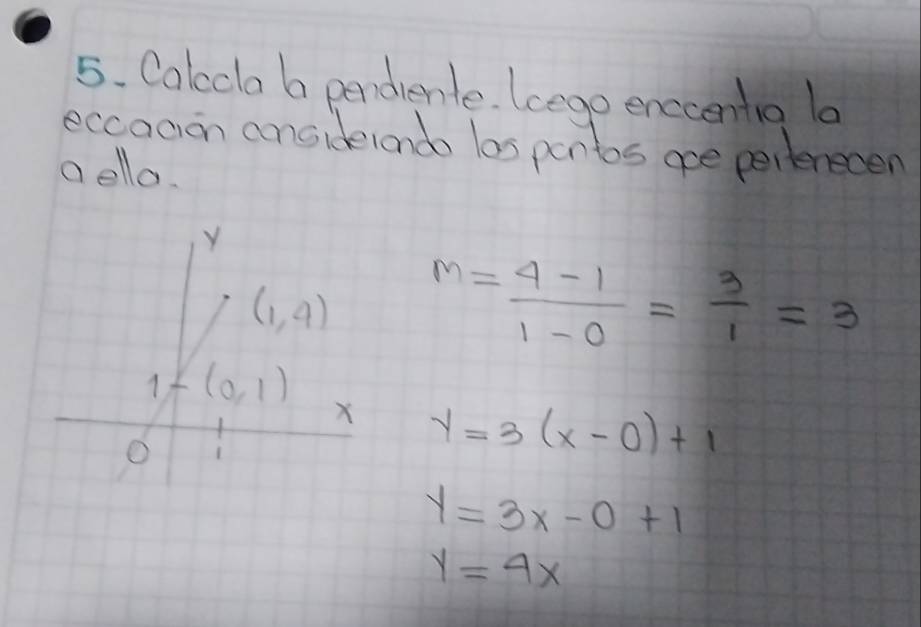 5. Calcula la pendiente. Luego encuentra la
ecuación considerando los puntos que pertenecen
a ella.
y
(1,4)
1 (0,1)
x
0 1
m = 4 - 1 / 1 - 0 = 3 / 1 = 3
y = 3 (x - 0) + 1
y = 3x - 0 + 1
y = 4x